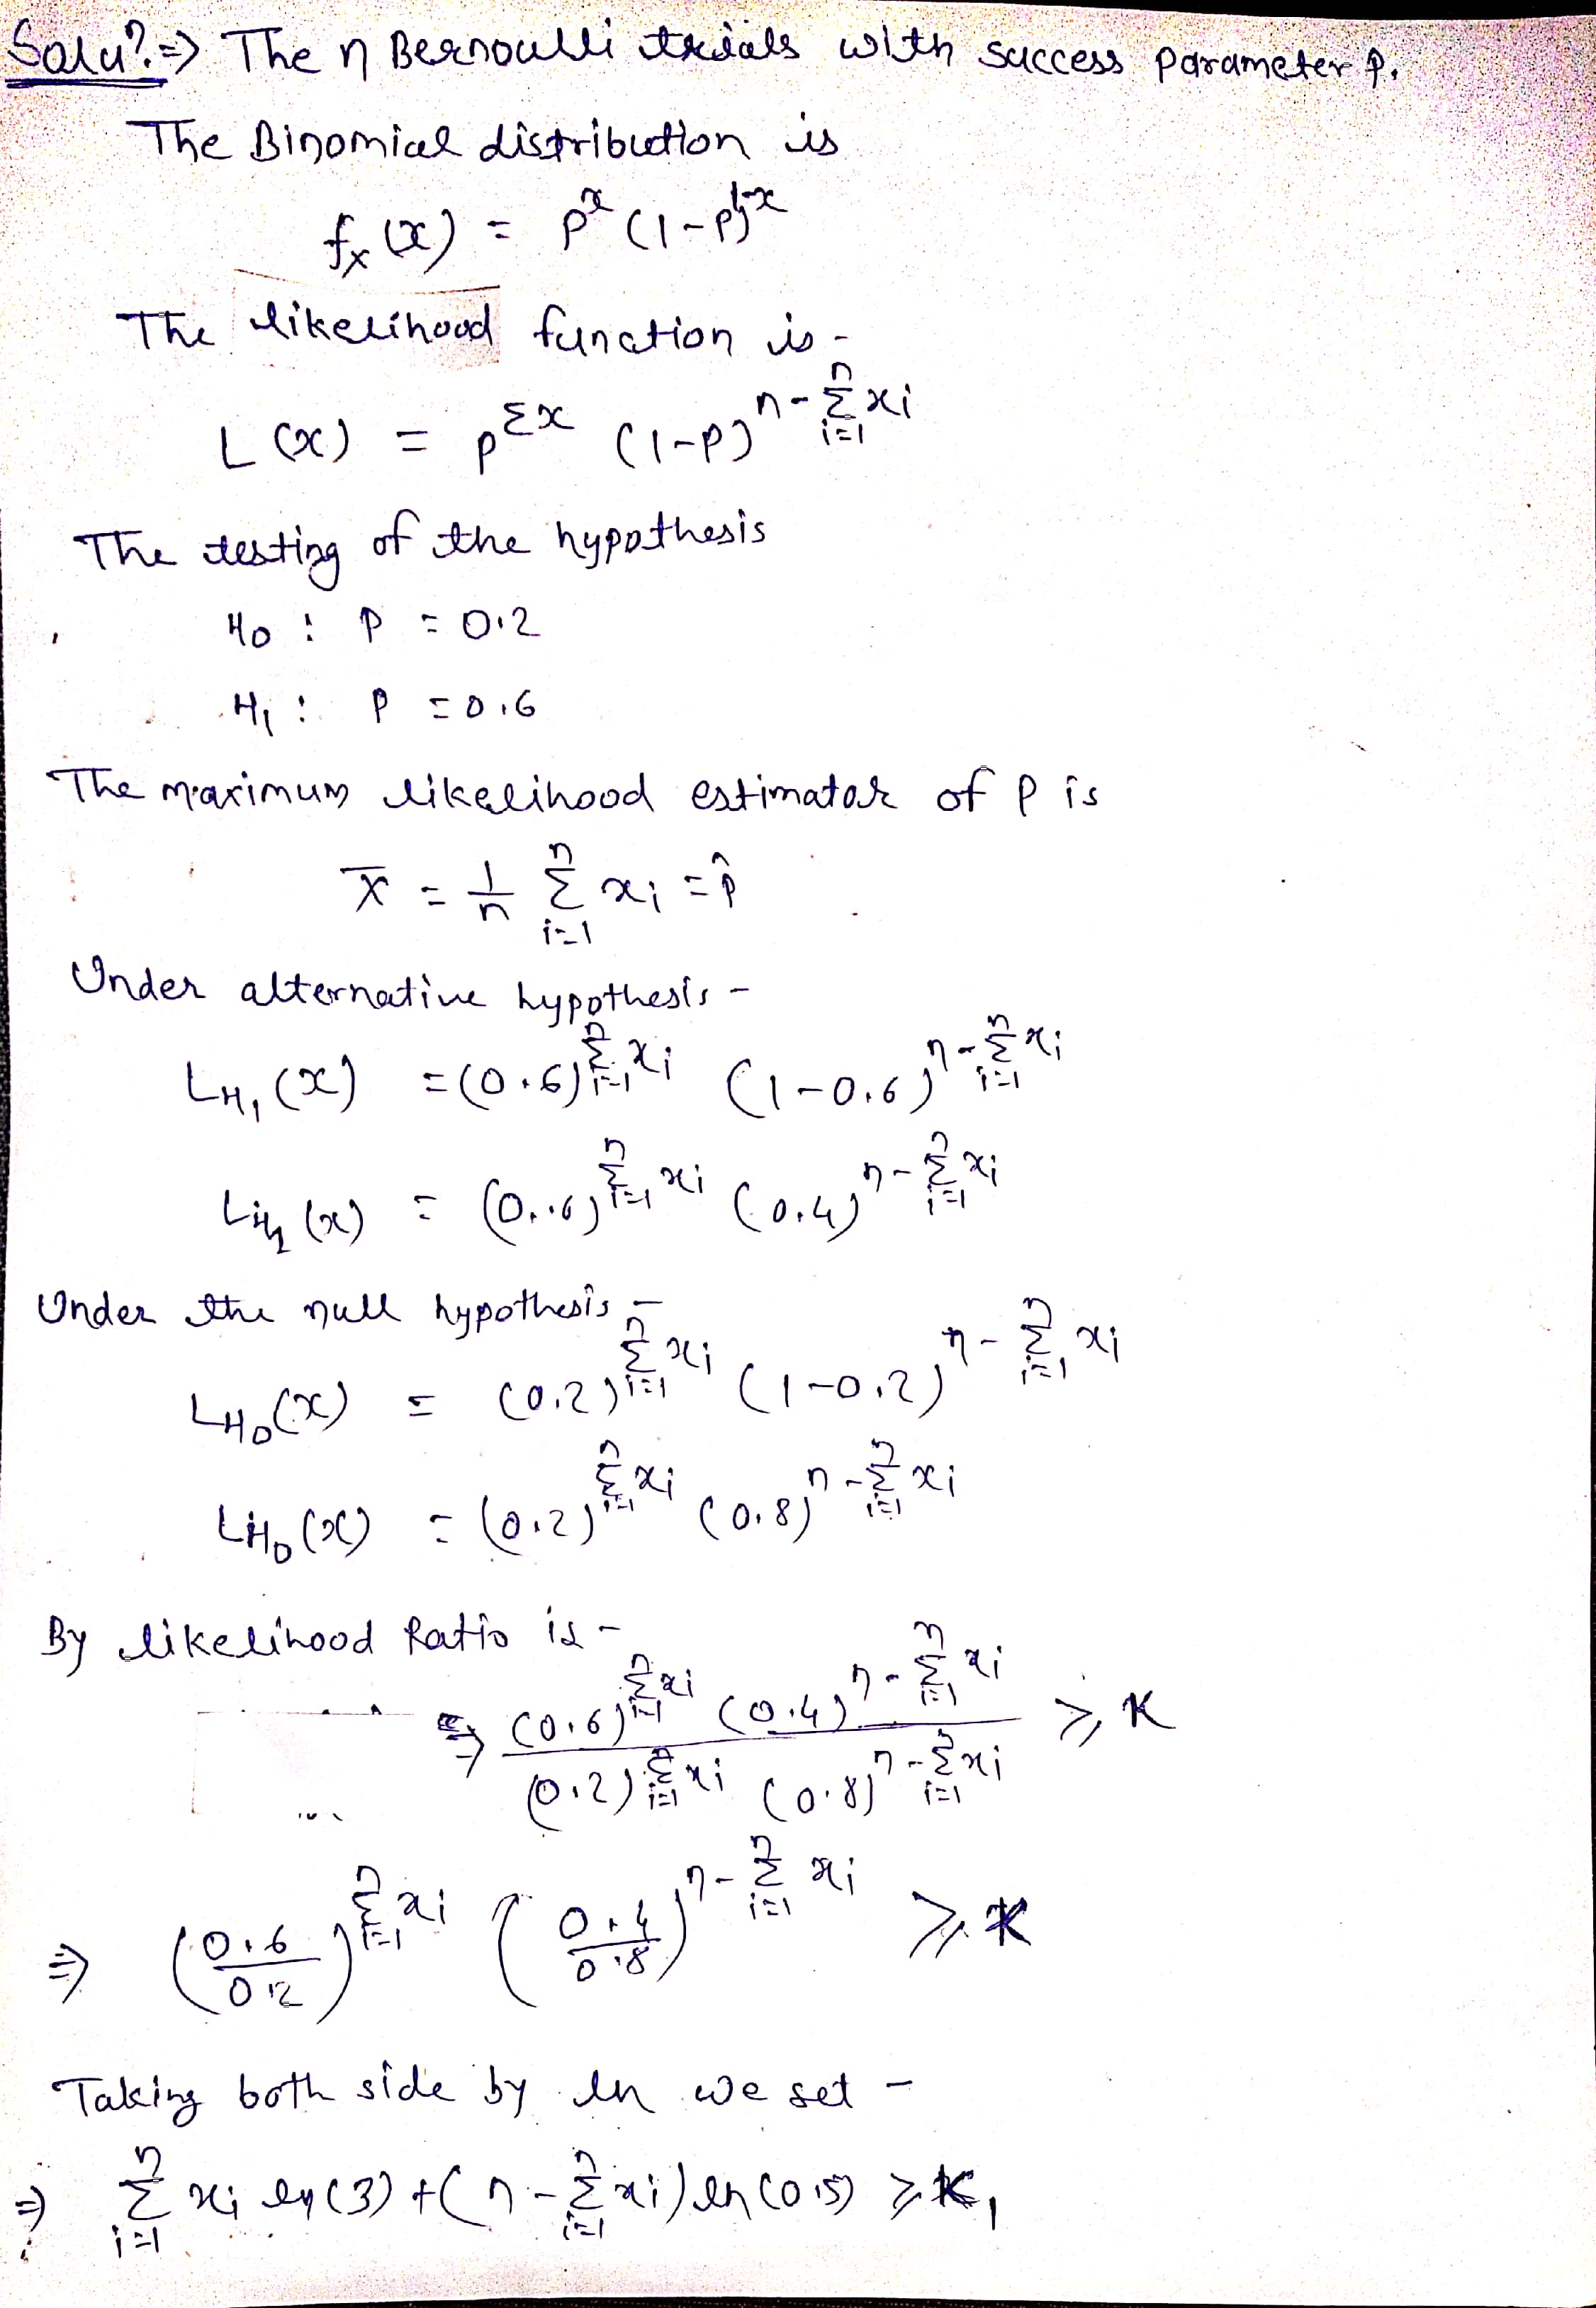 Solu? ⇒ The n Bernoulli trials with success parameter p.
The Binomial distribution is
fₓ(x) = p^x (1-p)^{1-x}
The likelihood function is -
L(x) = p^{Σx} (1-p)^{n-Σ_{i=1}^{n} xi}
The testing of the hypothesis
H0 : P = 0.2
H1 : P = 0.6
The maximum likelihood estimator of p is
x̄ = 1/n Σ_{i=1}^{n} xi = p̂
Under alternative hypothesis -
L_{H1}(x) = (0.6)^{Σ_{i=1}^{n} xi} (1-0.6)^{n-Σ_{i=1}^{n} xi}
L_{H1}(x) = (0.6)^{Σ_{i=1}^{n} xi} (0.4)^{n-Σ_{i=1}^{n} xi}
Under the null hypothesis -
L_{H0}(x) = (0.2)^{Σ_{i=1}^{n} xi} (1-0.2)^{n-Σ_{i=1}^{n} xi}
L_{H0}(x) = (0.2)^{Σ_{i=1}^{n} xi} (0.8)^{n-Σ_{i=1}^{n} xi}
By likelihood Ratio is -
⇒ (0.6)^{Σ_{i=1}^{n} xi} (0.4)^{n-Σ_{i=1}^{n} xi} / (0.2)^{Σ_{i=1}^{n} xi} (0.8)^{n-Σ_{i=1}^{n} xi} ≥ K
⇒ (0.6/0.2)^{Σ_{i=1}^{n} xi} (0.4/0.8)^{n-Σ_{i=1}^{n} xi} ≥ K
Taking both side by ln we get -
⇒ Σ_{i=1}^{n} xi ln(3) + (n - Σ_{i=1}^{n} xi) ln(0.5) ≥ K1